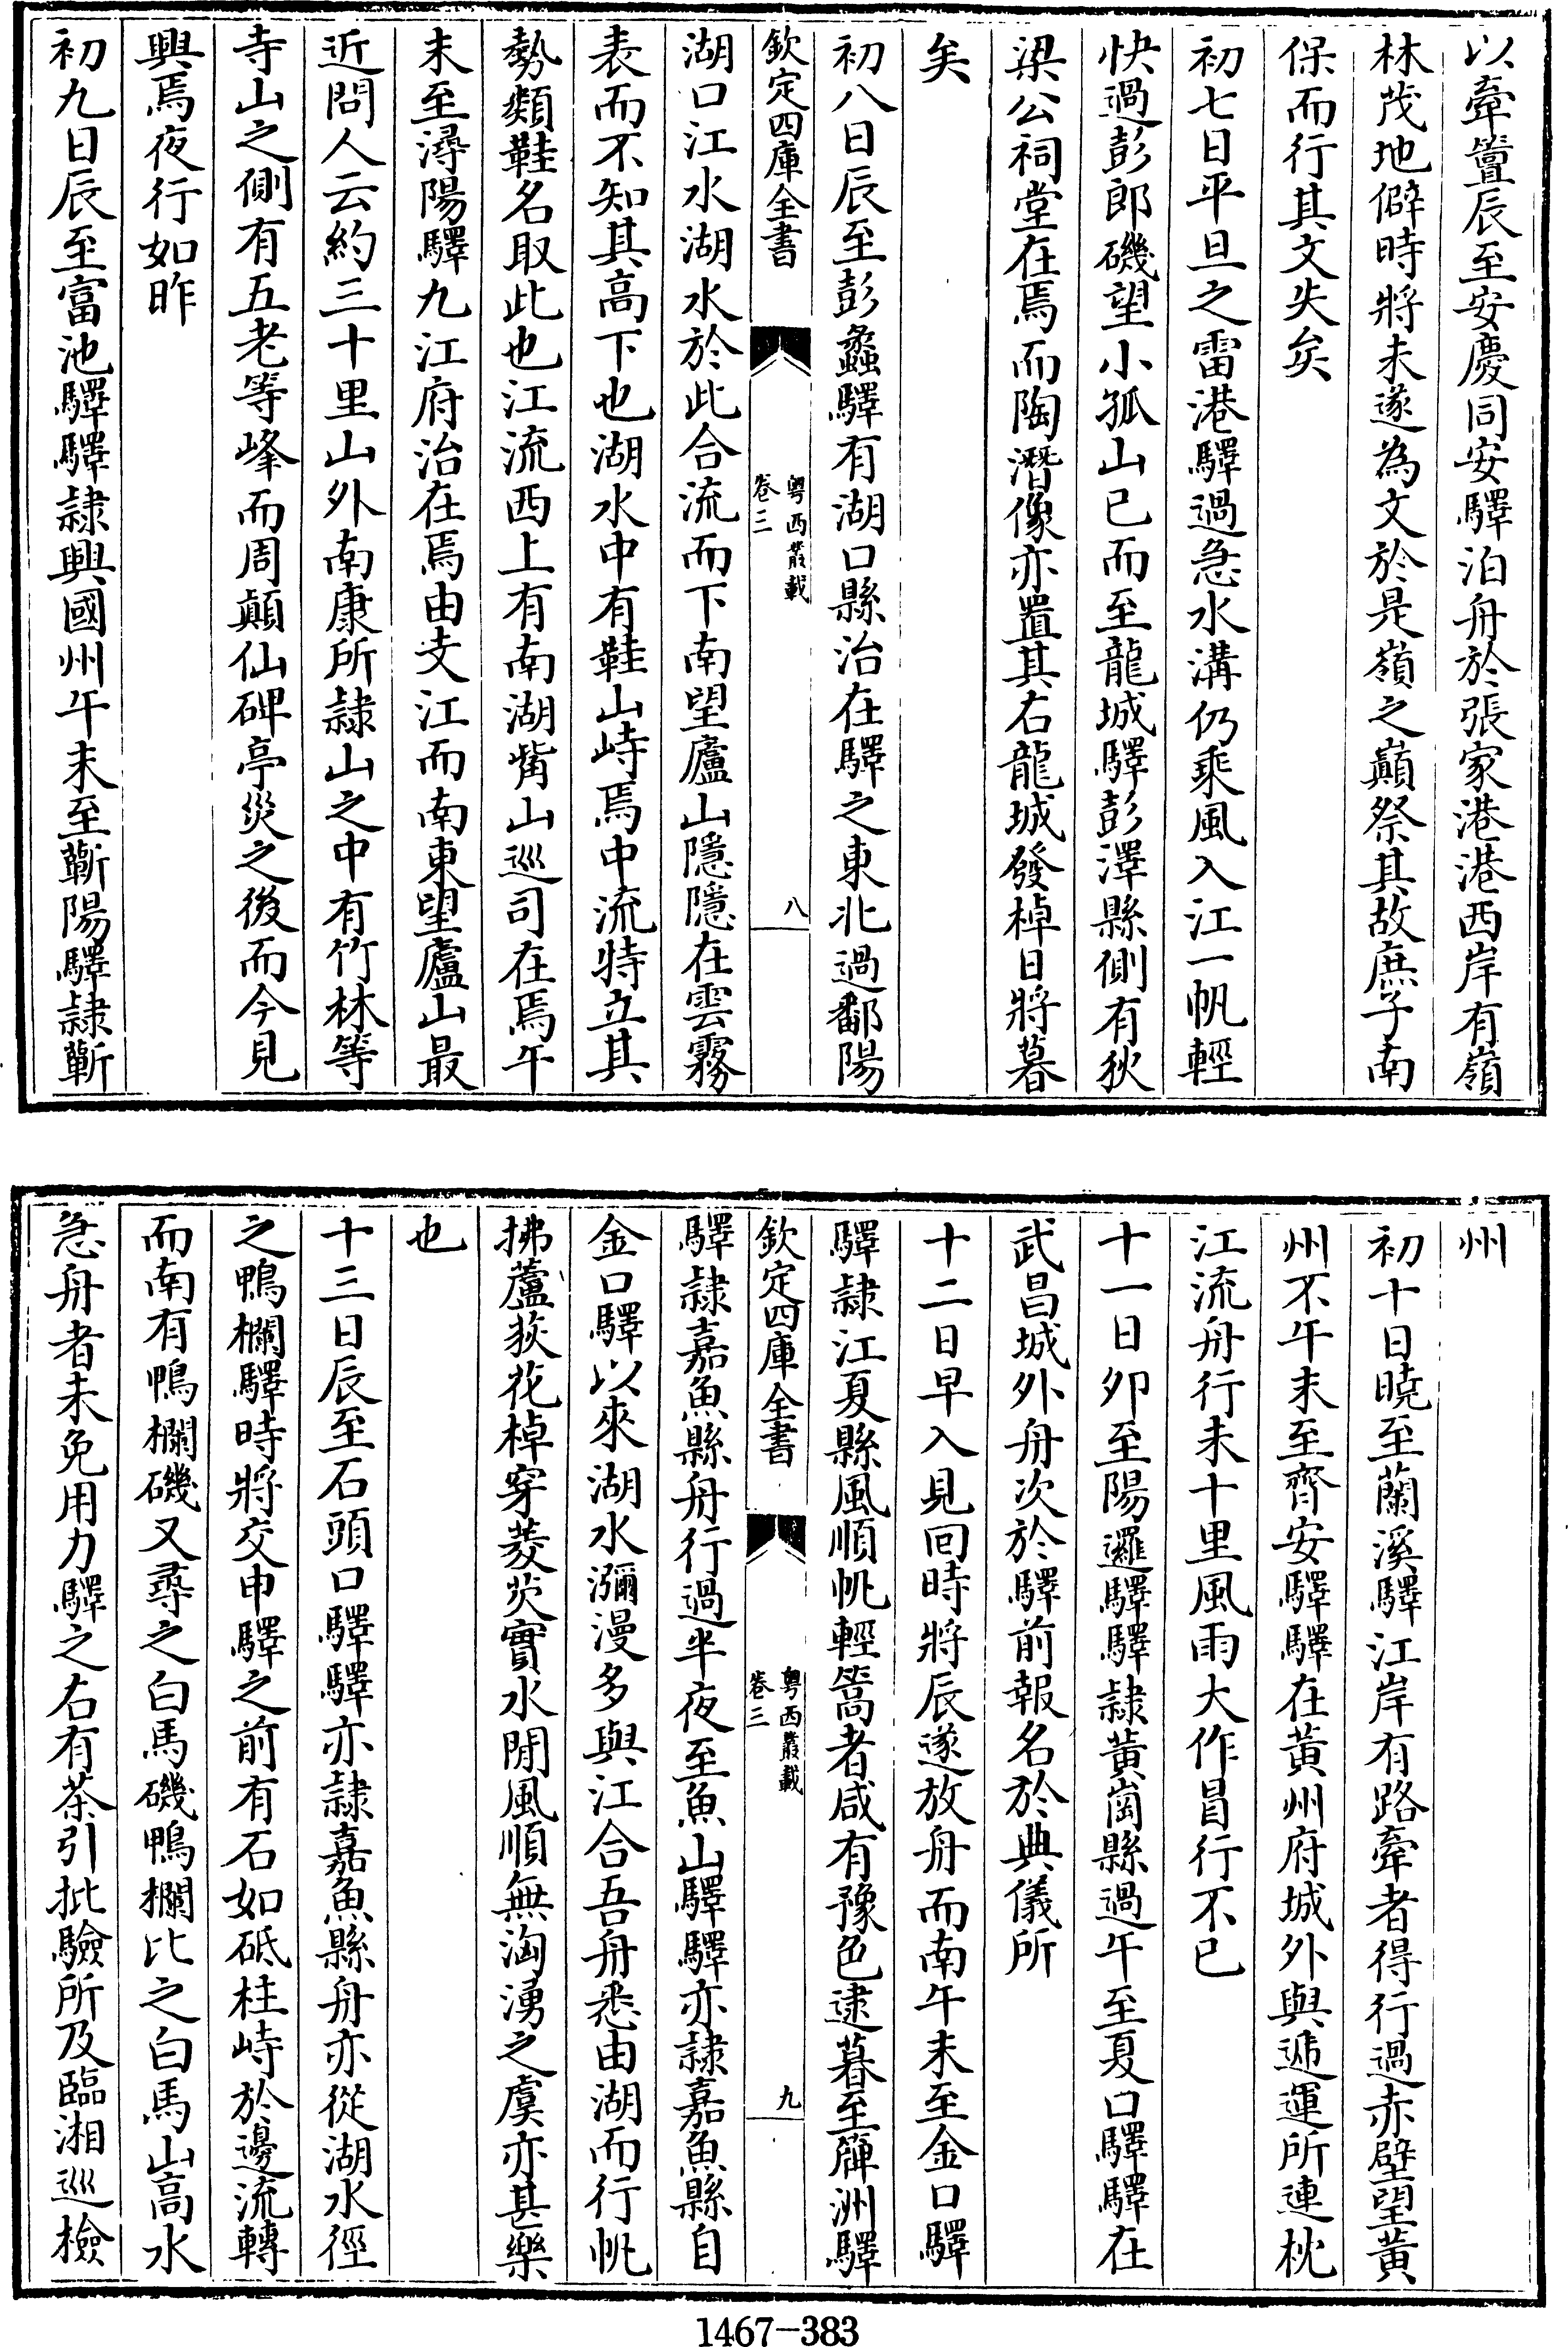 以牽簹辰至安慶同安驛泊舟於張家港港西岸有嶺
林茂地僻時將未遂為文於是嶺之巔祭其故庶子南
保而行其文失矣
初七日平旦之雷港驛過急水溝仍乘風入江一帆輕
快過彭郎磯望小孤山已而至龍城驛彭澤縣側有狄
梁公祠堂在焉而陶潛像亦置其右龍城發棹日將暮
矣
初八日辰至彭蠡驛有湖口縣治在驛之東北過鄱陽
欽定四庫全書
粵西叢載
卷三
八
湖口江水湖水於此合流而下南望廬山隱隱在雲霧
表而不知其高下也湖水中有鞋山峙焉中流特立其
勢類鞋名取此也江流西上有南湖觜山巡司在焉午
末至潯陽驛九江府治在焉由支江而南東望廬山最
近問人云約三十里山外南康所隸山之中有竹林等
寺山之側有五老等峰而周顛仙碑亭災之後而今見
興焉夜行如昨
初九日辰至富池驛驛隸興國州午末至蘄陽驛隸蘄
州
初十日曉至蘭溪驛江岸有路牽者得行過赤壁望黃
州不午末至齊安驛驛在黃州府城外與遞運所連枕
江流舟行未十里風雨大作冒行不已
十一日夘至陽邏驛驛隸黃崗縣過午至夏口驛驛在
武昌城外舟次於驛前報名於典儀所
十二日早入見回時將辰遂放舟而南午末至金口驛
驛隸江夏縣風順帆輕篙者咸有豫色逮暮至簰洲驛
欽定四庫全書
粵西叢載
卷三
九
驛隸嘉魚縣舟行過半夜至魚山驛驛亦隸嘉魚縣自
金口驛以來湖水瀰漫多與江合吾舟悉由湖而行帆
拂蘆荻花棹穿菱芡實水閒風順無洶湧之虞亦甚樂
也
十三日辰至石頭口驛驛亦隸嘉魚縣舟亦從湖水徑
之鴨欄驛時將交申驛之前有石如砥柱峙於邊流轉
而南有鴨欄磯又尋之白馬磯鴨欄比之白馬山高水
急舟者未免用力驛之右有茶引批驗所及臨湘巡檢
1467-383